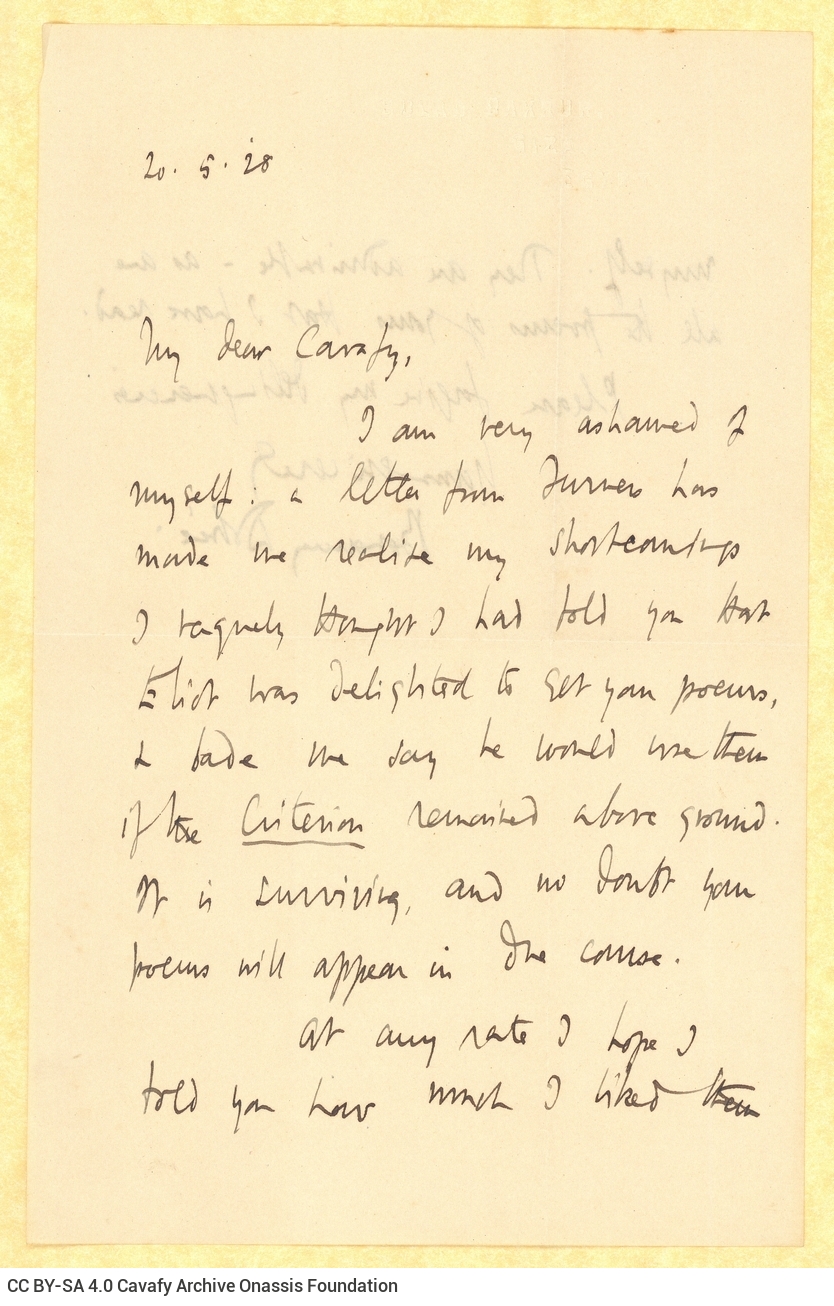 20. 5. 28
My dear Cavafy,
I am very ashamed of
myself: a letter from Furness has
made me realise my shortcomings
I vaguely thought I had told you that
Eliot was delighted to get your poems,
& bade me say he would use them
if the Criterion remained above ground.
It is surviving, and no doubt your
poems will appear in due course.
At any rate I hope I
told you how much I liked them
CC BY-SA 4.0 Cavafy Archive Onassis Foundation